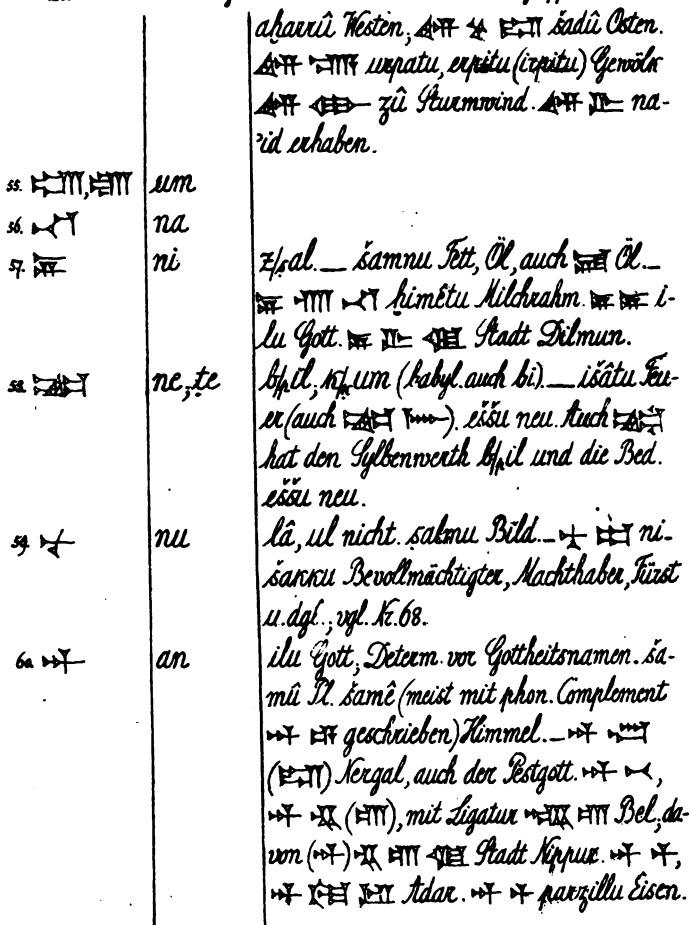 aḫarrû Westen; 𒅎 𒆳 𒊏 šadû Osten.
𒅎 urpatu, erpitu (irpitu) Gewölk
𒅎 zû Sturmwind. 𒅎 𒌇 na-
ʾid erhaben.
55. 𒌝 um
56. 𒈾 na
57. 𒉌 ni z/ṣal. — šamnu Fett, Öl, auch Öl. —
𒉌 𒉣 𒈾 ḫimêtu Milchrahm. 𒉌 𒉌 i-
lu Gott. 𒉌 𒌇 𒆠 Stadt Dilmun.
58. 𒉈 ne, ṭe b/pil, ḳ/um (babyl. auch bi). — išâtu Feu-
er (auch 𒉈). eššu neu. Auch
hat den Sylbenwerth b/pil und die Bed.
eššu neu.
59. 𒉡 nu lâ, ul nicht. ṣalmu Bild. — 𒉡 ni-
šakku Bevollmächtigter, Machthaber, Fürst
u. dgl., vgl. Nr. 68.
60. 𒀭 an ilu Gott, Determ. vor Gottheitsnamen. ša-
mû Pl. šamê (meist mit phon. Complement
𒀭 𒂊 geschrieben) Himmel. — 𒀭
Nergal, auch der Pestgott. 𒀭 𒁁,
𒀭 𒂗 mit Ligatur Bel, da-
von (𒀭) 𒂗 𒆠 Stadt Nippur. 𒀭 𒈦,
𒀭 Adar. 𒀭 𒁇 parzillu Eisen.